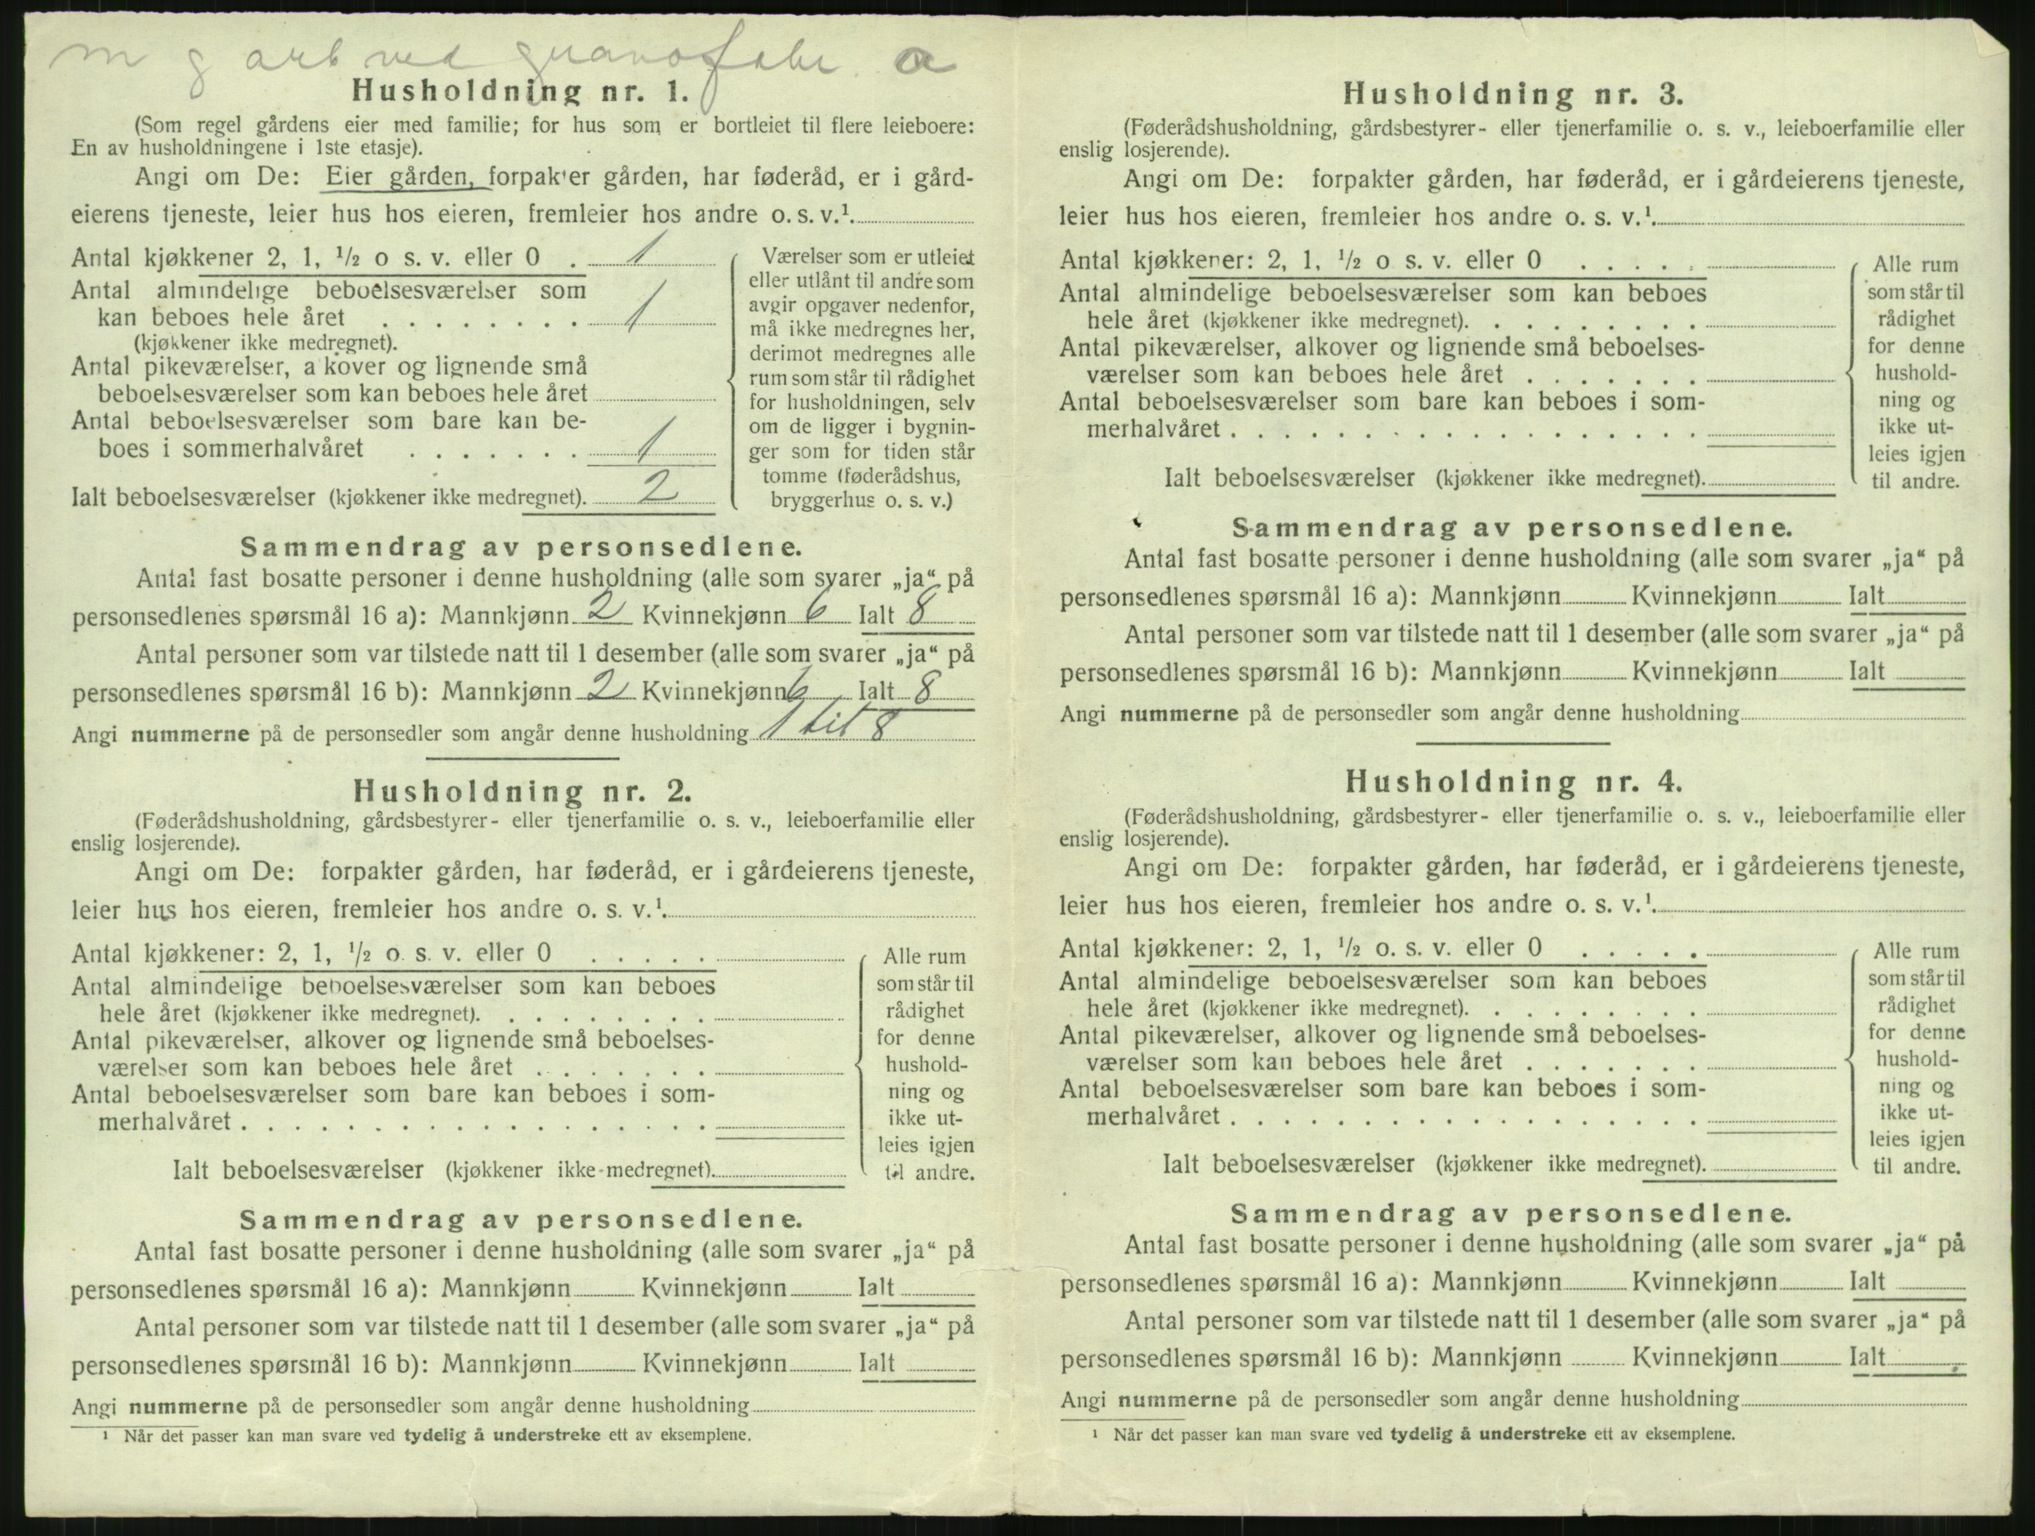 m g arb ved guanofabr. a
Husholdning nr. 1.
(Som regel gårdens eier med familie; for hus som er bortleiet til flere leieboere:
En av husholdningene i 1ste etasje).
Angi om De: Eier gården, forpakter gården, har føderåd, er i gård-
eierens tjeneste, leier hus hos eieren, fremleier hos andre o. s. v.¹
Antal kjøkkener 2, 1, ½ o s. v. eller 0 . 1
Antal almindelige beboelsesværelser som
kan beboes hele året . . . . . . . . 1
(kjøkkener ikke medregnet).
Antal pikeværelser, a kover og lignende små
beboelsesværelser som kan beboes hele året
Antal beboelsesværelser som bare kan be-
boes i sommerhalvåret . . . . . . . 1
Ialt beboelsesværelser (kjøkkener ikke medregnet). 2
Værelser som er utleiet
eller utlånt til andre som
avgir opgaver nedenfor,
må ikke medregnes her,
derimot medregnes alle
rum som står til rådighet
for husholdningen, selv
om de ligger i bygnin-
ger som for tiden står
tomme (føderådshus,
bryggerhus o. s. v.)
Sammendrag av personsedlene.
Antal fast bosatte personer i denne husholdning (alle som svarer „ja“ på
personsedlenes spørsmål 16 a): Mannkjønn 2 Kvinnekjønn 6 Ialt 8
Antal personer som var tilstede natt til 1 desember (alle som svarer „ja“ på
personsedlenes spørsmål 16 b): Mannkjønn 2 Kvinnekjønn 6 Ialt 8
Angi nummerne på de personsedler som angår denne husholdning 1 til 8
Husholdning nr. 2.
(Føderådshusholdning, gårdsbestyrer- eller tjenerfamilie o. s. v., leieboerfamilie eller
enslig losjerende).
Angi om De: forpakter gården, har føderåd, er i gårdeierens tjeneste,
leier hus hos eieren, fremleier hos andre o. s. v.¹.
Antal kjøkkener: 2, 1, ½ o. s. v. eller 0 . . . . .
Antal almindelige beboelsesværelser som kan beboes
hele året (kjøkkener ikke medregnet). . . . . . . . .
Antal pikeværelser, alkover og lignende små beboelses-
værelser som kan beboes hele året . . . . . . .
Antal beboelsesværelser som bare kan beboes i som-
merhalvåret . . . . . . . . . . . . . . . . . .
Ialt beboelsesværelser (kjøkkener ikke medregnet).
Alle rum
som står til
rådighet
for denne
hushold-
ning og
ikke ut-
leies igjen
til andre.
Sammendrag av personsedlene.
Antal fast bosatte personer i denne husholdning (alle som svarer „ja“ på
personsedlenes spørsmål 16 a): Mannkjønn Kvinnekjønn Ialt
Antal personer som var tilstede natt til 1 desember (alle som svarer „ja“ på
personsedlenes spørsmål 16 b): Mannkjønn Kvinnekjønn Ialt
Angi nummerne på de personsedler som angår denne husholdning
¹ Når det passer kan man svare ved tydelig å understreke ett av eksemplene.
Husholdning nr. 3.
(Føderådshusholdning, gårdsbestyrer- eller tjenerfamilie o. s. v., leieboerfamilie eller
enslig losjerende).
Angi om De: forpakter gården, har føderåd, er i gårdeierens tjeneste,
leier hus hos eieren, fremleier hos andre o. s. v.¹.
Antal kjøkkener: 2, 1, ½ o s. v. eller 0 . . . . .
Antal almindelige beboelsesværelser som kan beboes
hele året (kjøkkener ikke medregnet). . . . . . . . .
Antal pikeværelser, alkover og lignende små beboelses-
værelser som kan beboes hele året . . . . . . .
Antal beboelsesværelser som bare kan beboes i som-
merhalvåret . . . . . . . . . . . . . . . . . .
Ialt beboelsesværelser (kjøkkener ikke medregnet).
Alle rum
som står til
rådighet
for denne
hushold-
ning og
ikke ut-
leies igjen
til andre.
Sammendrag av personsedlene.
Antal fast bosatte personer i denne husholdning (alle som svarer „ja“ på
personsedlenes spørsmål 16 a): Mannkjønn Kvinnekjønn Ialt
Antal personer som var tilstede natt til 1 desember (alle som svarer „ja“ på
personsedlenes spørsmål 16 b): Mannkjønn Kvinnekjønn Ialt
Angi nummerne på de personsedler som angår denne husholdning
Husholdning nr. 4.
(Føderådshusholdning, gårdsbestyrer- eller tjenerfamilie o. s. v., leieboerfamilie eller
enslig losjerende).
Angi om De: forpakter gården, har føderåd, er i gårdeierens tjeneste,
leier hus hos eieren, fremleier hos andre o. s. v.¹.
Antal kjøkkener: 2, 1, ½ o. s. v. eller 0 . . . . .
Antal almindelige beboelsesværelser som kan beboes
hele året (kjøkkener ikke medregnet). . . . . . . . .
Antal pikeværelser, alkover og lignende små beboelses-
værelser som kan beboes hele året . . . . . . .
Antal beboelsesværelser som bare kan beboes i som-
merhalvåret . . . . . . . . . . . . . . . . . .
Ialt beboelsesværelser (kjøkkener ikke medregnet).
Alle rum
som står til
rådighet
for denne
hushold-
ning og
ikke ut-
leies igjen
til andre.
Sammendrag av personsedlene.
Antal fast bosatte personer i denne husholdning (alle som svarer „ja“ på
personsedlenes spørsmål 16 a): Mannkjønn Kvinnekjønn Ialt
Antal personer som var tilstede natt til 1 desember (alle som svarer „ja“ på
personsedlenes spørsmål 16 b): Mannkjønn Kvinnekjønn Ialt
Angi nummerne på de personsedler som angår denne husholdning
¹ Når det passer kan man svare ved tydelig å understreke ett av eksemplene.